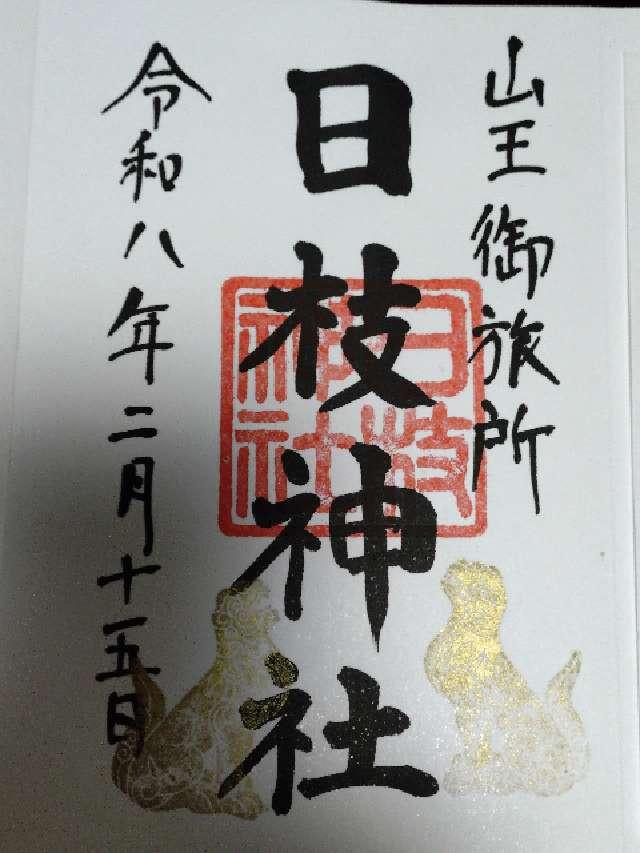 山王御旅所
日枝神社
日枝神社
令和八年二月十五日